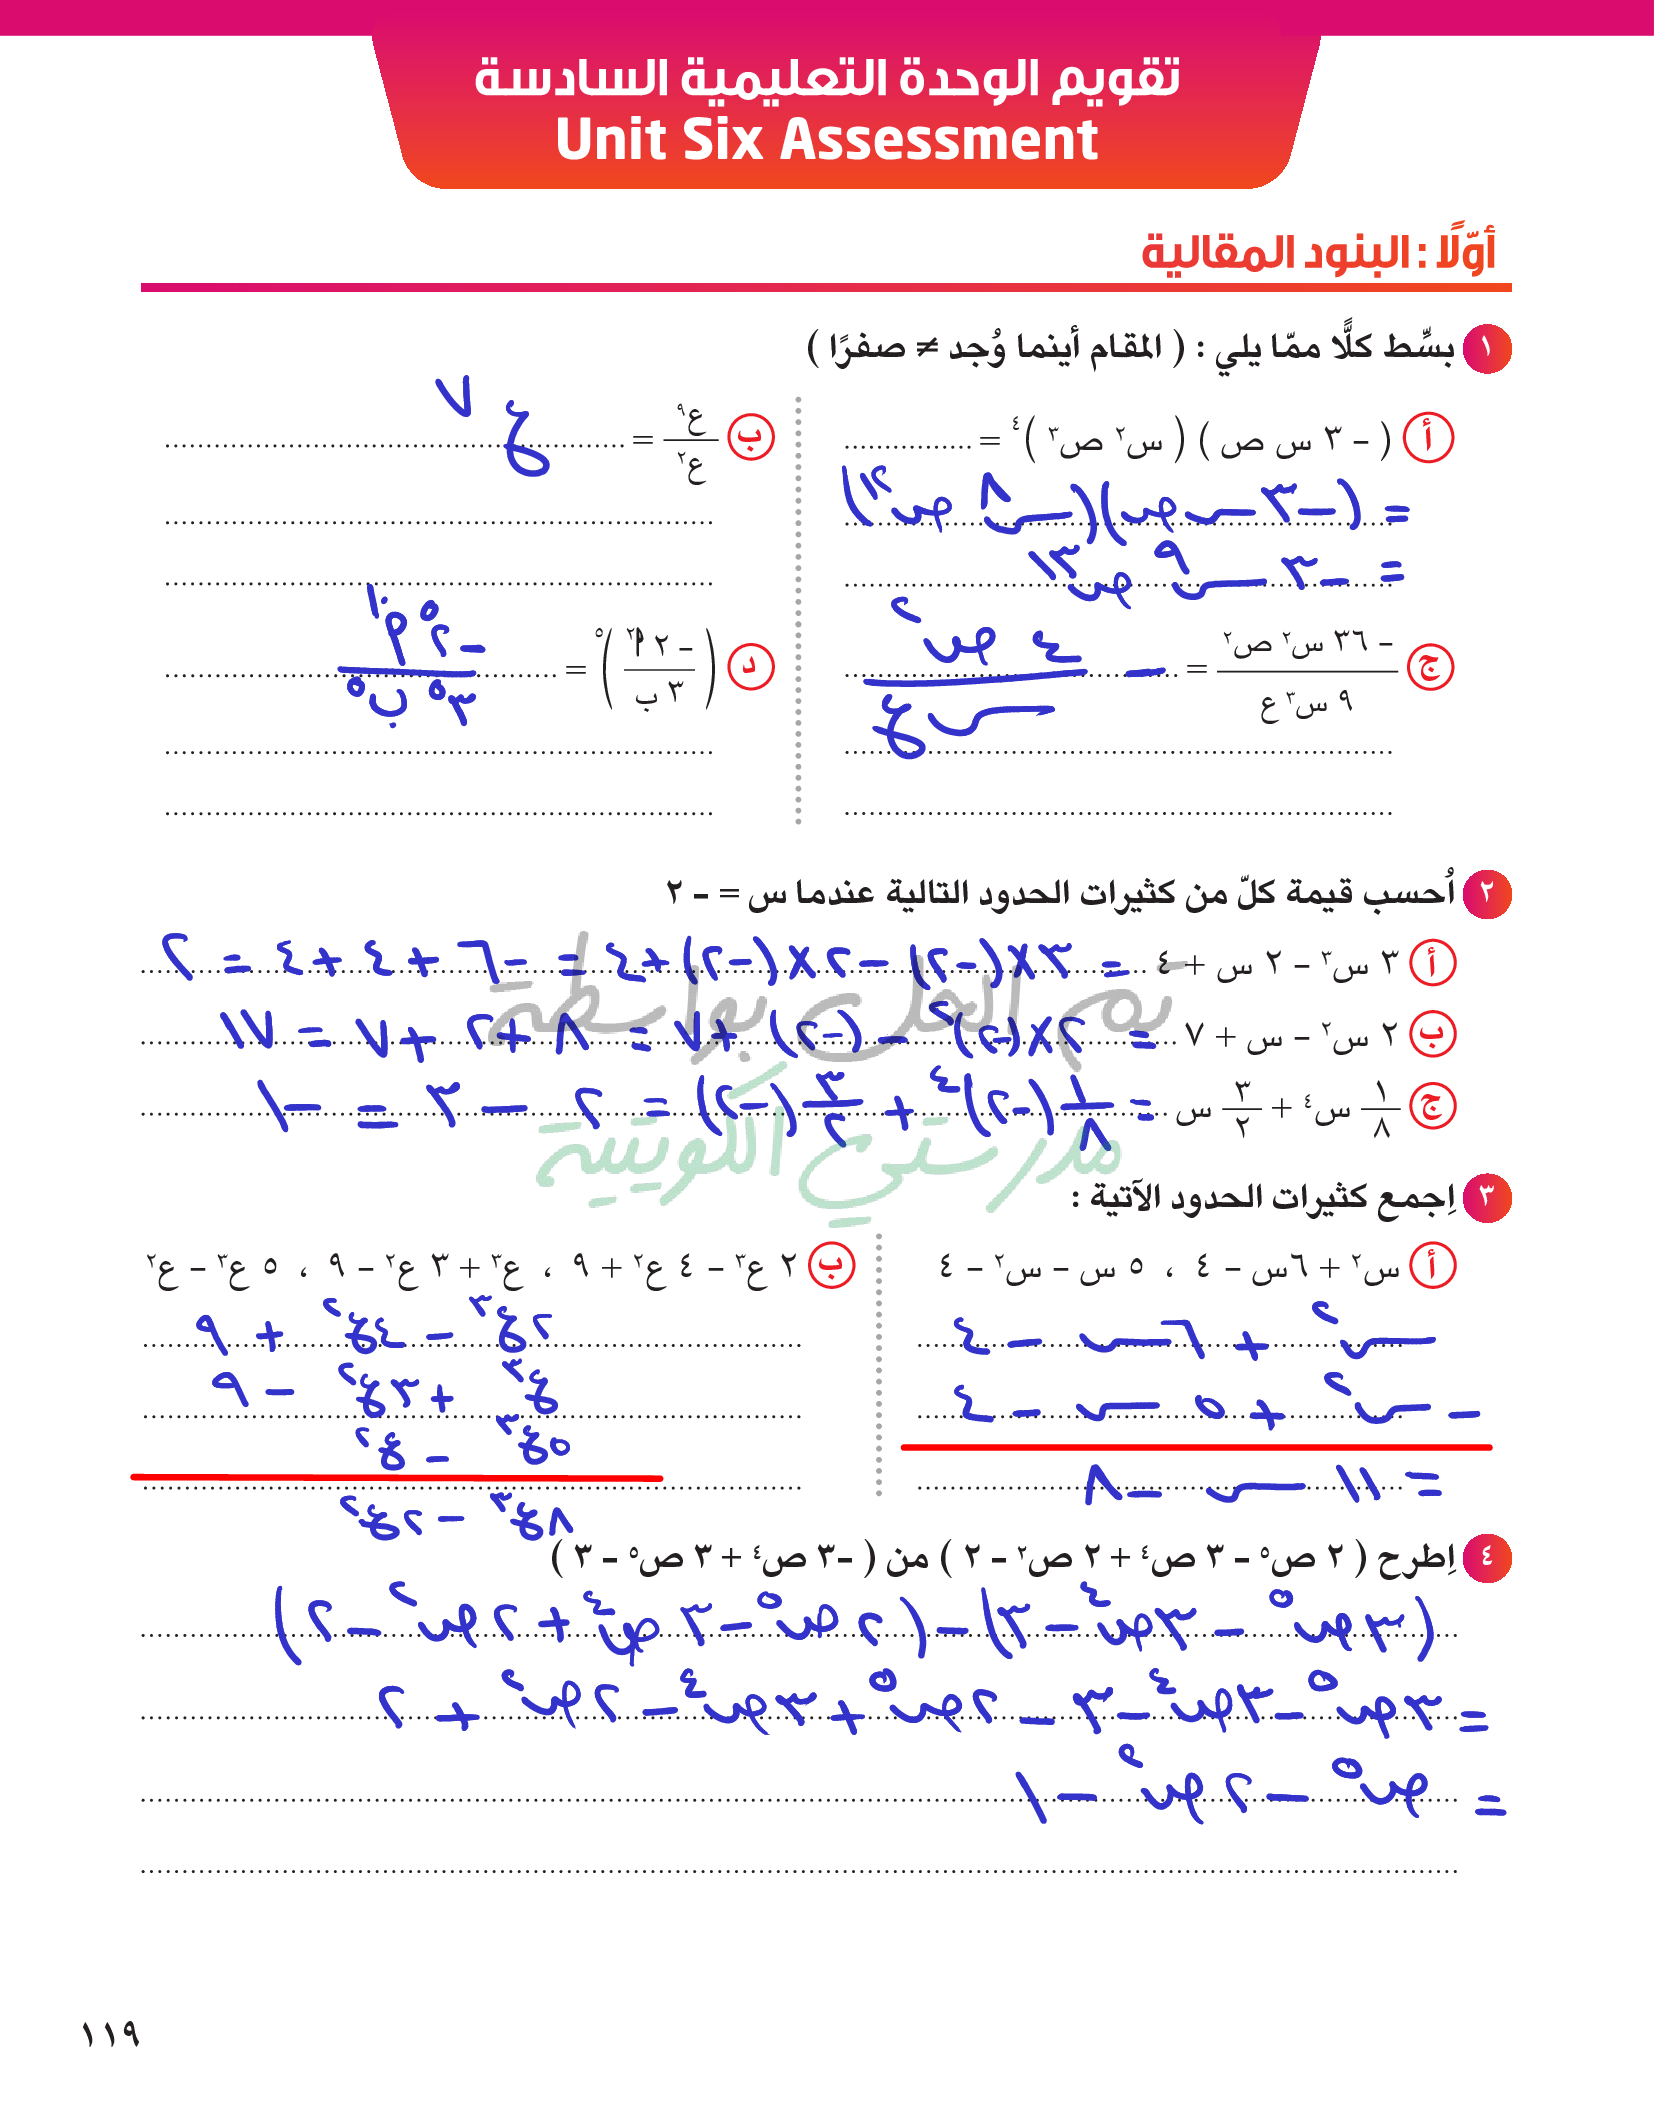 تقويم الوحدة التعليمية السادسة
Unit Six Assessment
أوّلًا : البنود المقالية
١ بسِّط كلًّا ممّا يلي : ( المقام أينما وُجد ≠ صفرًا )
أ ( – ٣ س ص ) ( س٢ ص٣ )٤ =
= (–٣ س ص)(س٨ ص١٢)
= –٣ س٩ ص١٣
ب ع٩ / ع٢ = ع٧
ج – ٣٦ س٢ ص٢ / ٩ س٣ ع = – ٤ ص٢ / س ع
د ( – ٢ أ٢ / ٣ ب )٥ = –٢٥ أ١٠ / ٣٥ ب٥
٢ اُحسب قيمة كلّ من كثيرات الحدود التالية عندما س = – ٢
أ ٣ س٣ – ٢ س + ٤ = ٣×(–٢) –٢×(–٢)+٤ = –٦ + ٤ + ٤ = ٢
ب ٢ س٢ – س + ٧ = ٢×(–٢)٢ – (–٢) +٧ = ٨ +٢ +٧ = ١٧
ج ١/٨ س٤ + ٣/٢ س = ١/٨ (–٢)٤ + ٣/٢ (–٢) = ٢ – ٣ = –١
تم الحل بواسطة
مدرستي الكويتية
٣ اِجمع كثيرات الحدود الآتية :
أ س٢ + ٦س – ٤ ، ٥ س – س٢ – ٤
س٢ + ٦س – ٤
– س٢ + ٥ س – ٤
= ١١ س –٨
ب ٢ ع٣ – ٤ ع٢ + ٩ ، ع٣ + ٣ ع٢ – ٩ ، ٥ ع٣ – ع٢
٢ع٣ – ٤ع٢ + ٩
ع٣ +٣ع٢ – ٩
٥ع٣ – ع٢
٨ع٣ – ٢ع٢
٤ اِطرح ( ٢ ص٥ – ٣ ص٤ + ٢ ص٢ – ٢ ) من ( –٣ ص٤ + ٣ ص٥ – ٣ )
(٣ص٥ – ٣ص٤ –٣) – (٢ص٥ –٣ ص٤ +٢ص٢ –٢)
= ٣ص٥ –٣ص٤ –٣ – ٢ص٥ +٣ص٤ –٢ص٢ + ٢
= ص٥ – ٢ص٢ –١
١١٩